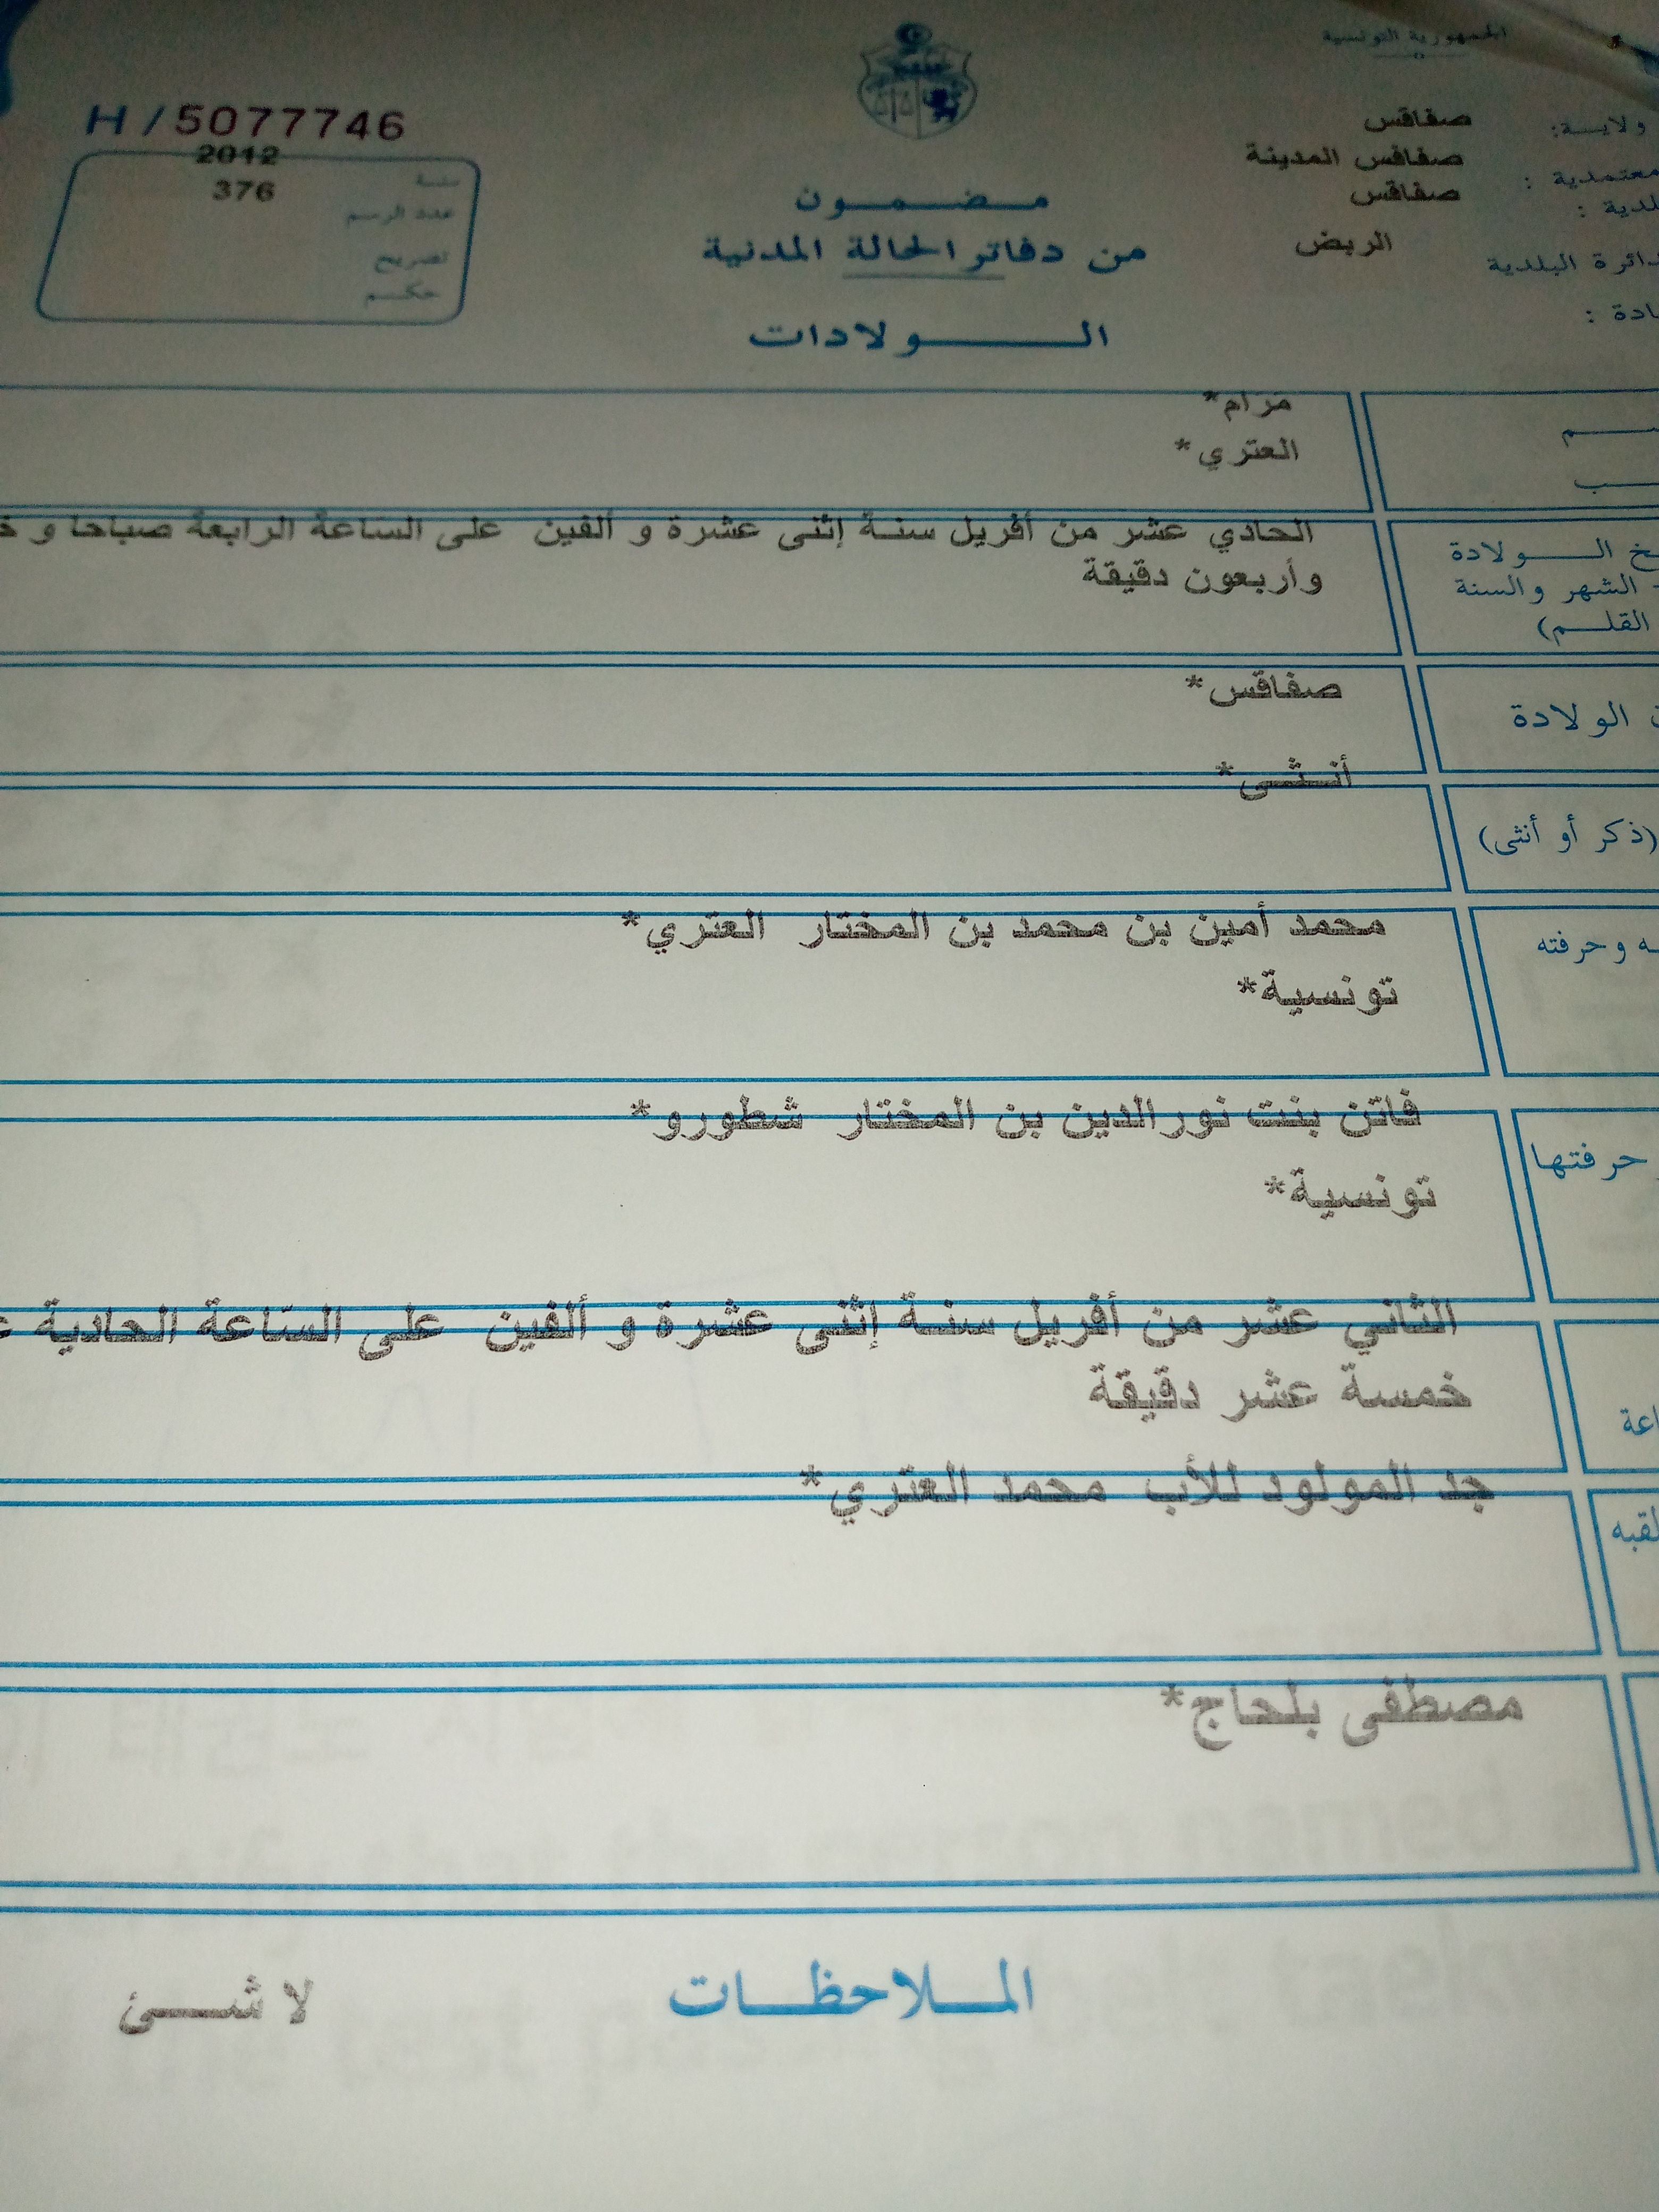 الجمهورية التونسية
H / 5077746
ولايــة: صفاقس
معتمدية : صفاقس المدينة
صفاقس
دائرة البلدية الربض
سنة 2012
عدد الرسم 376
تصريح
حكــم
مــضــمــون
من دفاتر الحالة المدنية
الــولادات
مرام*
العتري*
الــولادة
الشهر والسنة
القلــم)
الحادي عشر من أفريل سنـة إثنى عشرة و ألفين على الساعة الرابعة صباحا و
وأربعون دقيقة
الولادة
صفاقس*
(ذكر أو أنثى)
أنــثــى*
وحرفته
محمد أمين بن محمد بن المختار العتري*
تونسية*
حرفتها
فاتن بنت نورالدين بن المختار شطورو*
تونسية*
الثاني عشر من أفريل سنـة إثنى عشرة و ألفين على الساعة الحادية
خمسة عشر دقيقة
جد المولود للأب محمد العتري*
مصطفى بلحاج*
المــلاحظــات
لا شــئ